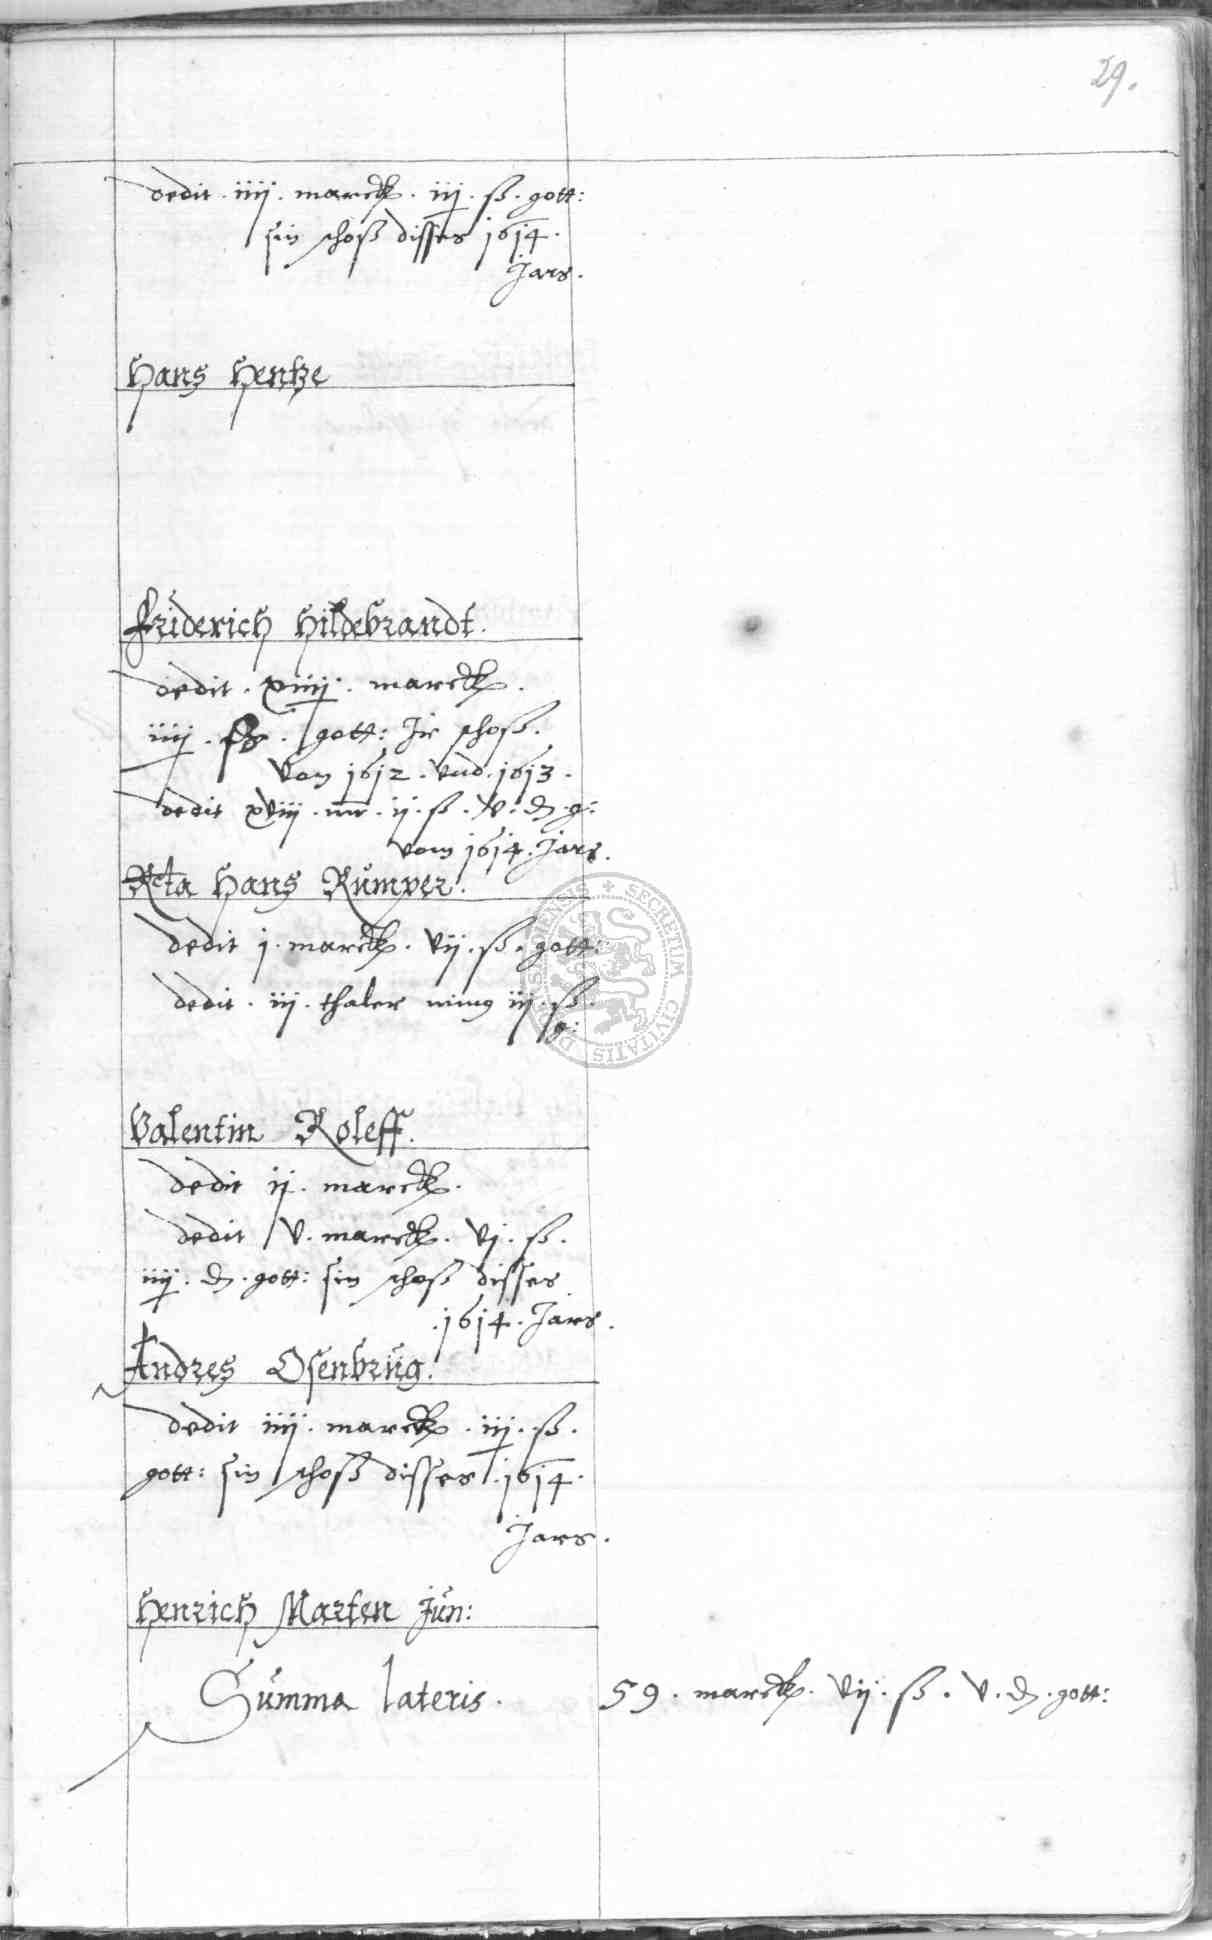 29.
dedit . iiij . marck . iij . ß . gott:
sin schoß disses 1614 .
Jars .
Hans Hentze
Friderich Hildebrandt .
dedit . xiiij . marck .
iiij . ß . gott: Jr schoß .
vom 1612 . vnd . 1613 .
dedit xviij . mr . ij . ß . v . d . g:
vom 1614 . Jars .
Rcta Hans Rümper .
dedit j . marck . vij . ß . gott:
dedit . iij . thaler ming iij . ß .
g:
Valentin Roleff .
dedit ij . marck .
dedit v . marck . vj . ß .
iiij . d . gott: sin schoß disses
. 1614 . Jars .
Andres Osenbrüg .
dedit iiij . marck . iij . ß .
gott: sin schoß disses . 1614 .
Jars .
Henrich Marten Jün:
Sümma lateris . 59 . marck . vij . ß . v . d . gott:
SECRETUM CIVITATIS